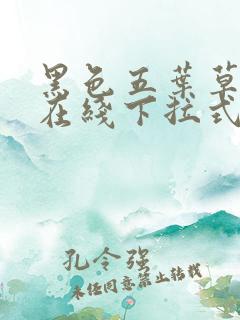 黑色五葉草
在綫下拉式
孔令强
未经同意禁止转载